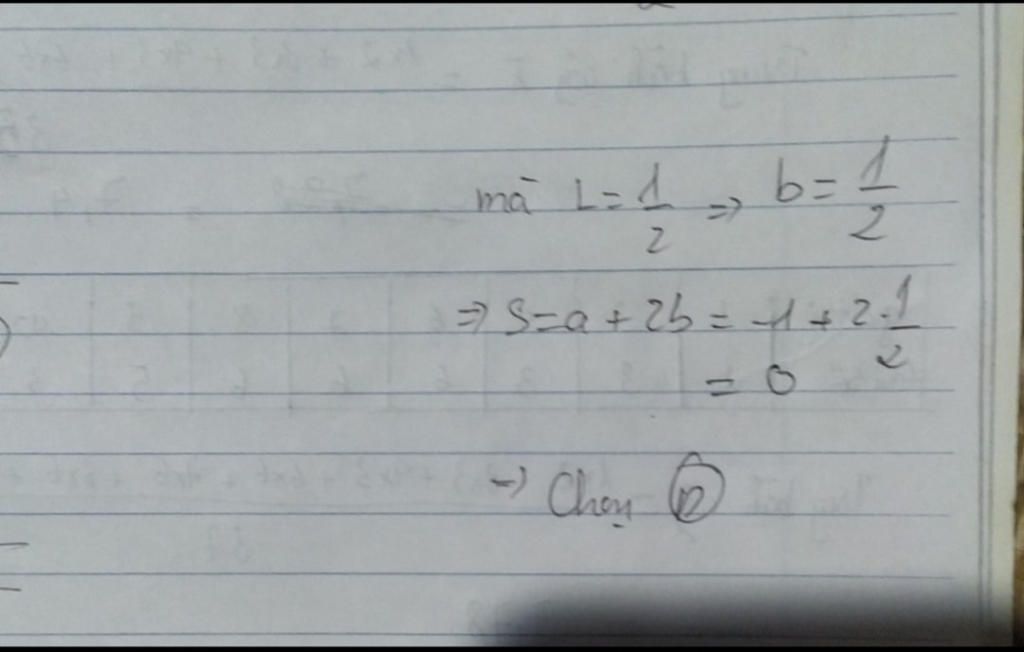 mà L = 1/2 => b = 1/2
=> S = a + 2b = -1 + 2 . 1/2
= 0
-> Chọn